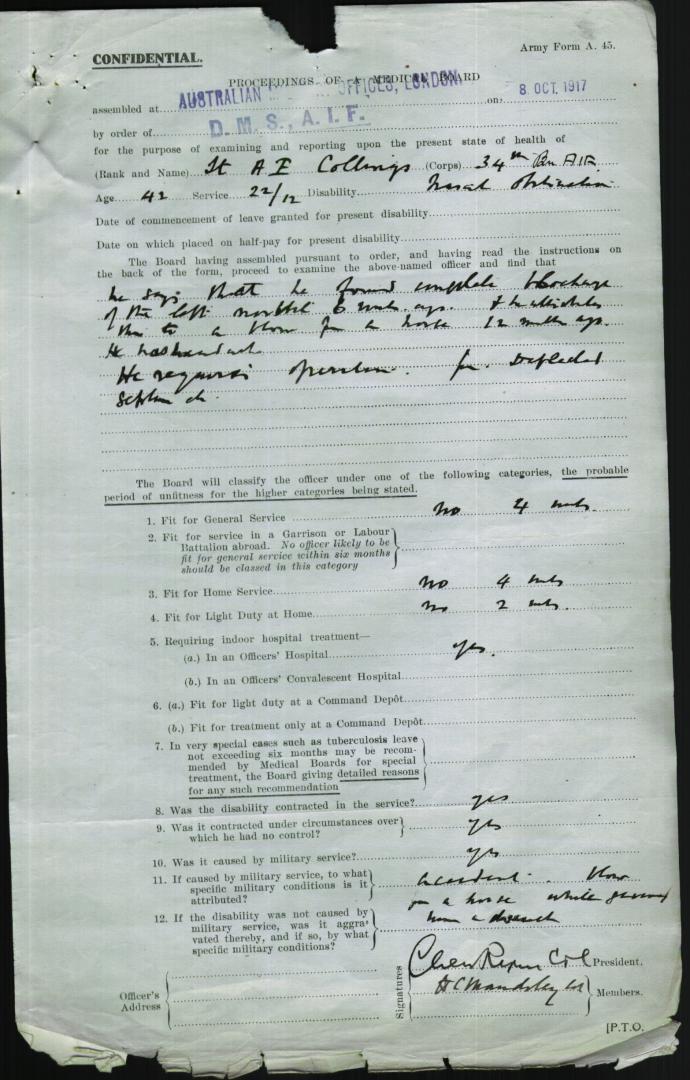 CONFIDENTIAL.
Army Form A. 45.
PROCEEDINGS OF A MEDICAL BOARD
assembled at AUSTRALIAN OFFICES, LONDON on 8 OCT. 1917
by order of D. M. S., A. I. F.
for the purpose of examining and reporting upon the present state of health of
(Rank and Name) Lt A E Collings (Corps) 34th Bn AIF
Age 42 Service 22/12 Disability Nasal Obstruction
Date of commencement of leave granted for present disability
Date on which placed on half-pay for present disability
The Board having assembled pursuant to order, and having read the instructions on
the back of the form, proceed to examine the above-named officer and find that
he says that he found complete blockage
of the left nostril 6 mths ago. & he attributes
this to a blow from a horse 12 months ago.
He has headache
He requires operation. for Deflected
Septum
The Board will classify the officer under one of the following categories, the probable
period of unfitness for the higher categories being stated.
1. Fit for General Service no 4 mths.
2. Fit for service in a Garrison or Labour
Battalion abroad. No officer likely to be
fit for general service within six months
should be classed in this category
3. Fit for Home Service no 4 mths
4. Fit for Light Duty at Home no 2 mths.
5. Requiring indoor hospital treatment—
(a.) In an Officers' Hospital yes.
(b.) In an Officers' Convalescent Hospital
6. (a.) Fit for light duty at a Command Depôt
(b.) Fit for treatment only at a Command Depôt
7. In very special cases such as tuberculosis leave
not exceeding six months may be recom-
mended by Medical Boards for special
treatment, the Board giving detailed reasons
for any such recommendation
8. Was the disability contracted in the service? yes
9. Was it contracted under circumstances over
which he had no control? yes
10. Was it caused by military service? yes
11. If caused by military service, to what
specific military conditions is it
attributed?
accident. blow
from a horse while
12. If the disability was not caused by
military service, was it aggra-
vated thereby, and if so, by what
specific military conditions?
Signatures
Col President.
Members.
Officer's
Address
[P.T.O.